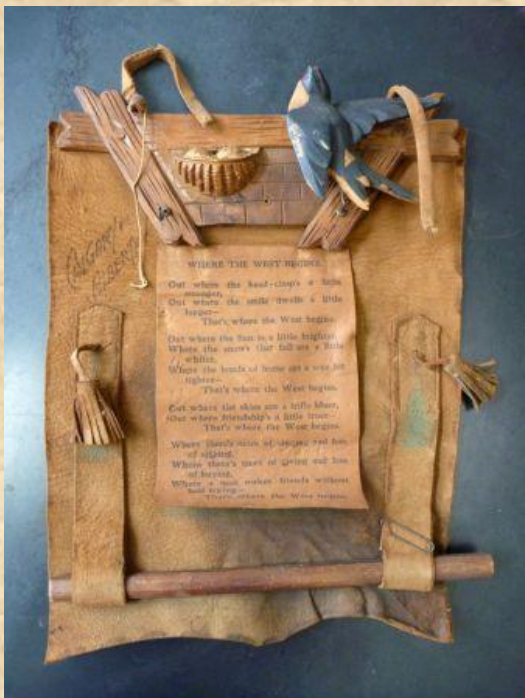 Calgary
Alberta
WHERE THE WEST BEGINS.
Out where the hand-clasp's a little
stronger,
Out where the smile dwells a little
longer—
That's where the West begins.
Out where the Sun is a little brighter,
Where the snow's that fall are a little
whiter,
Where the bonds of home are a wee bit
tighter—
That's where the West begins.
Out where the skies are a trifle bluer,
Out where friendship's a little truer—
That's where the West begins.
Where there's more of singing and less
of sighing,
Where there's more of giving and less
of buying,
Where a man makes friends without
half trying—
That's where the West begins.